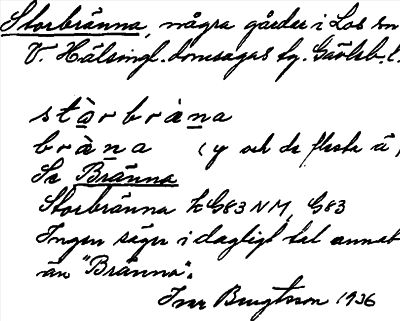 Storbränna, några gårdar i Los sn
V. Hälsingl. domsagas tg. Gävleb. l.
stòrbràna
bràna (y och de flesta ä)
Se Bränna
Storbränna kG83NM, G83
Ingen säger i dagligt tal annat
än "Bränna".
Ivar Bengtsson 1936